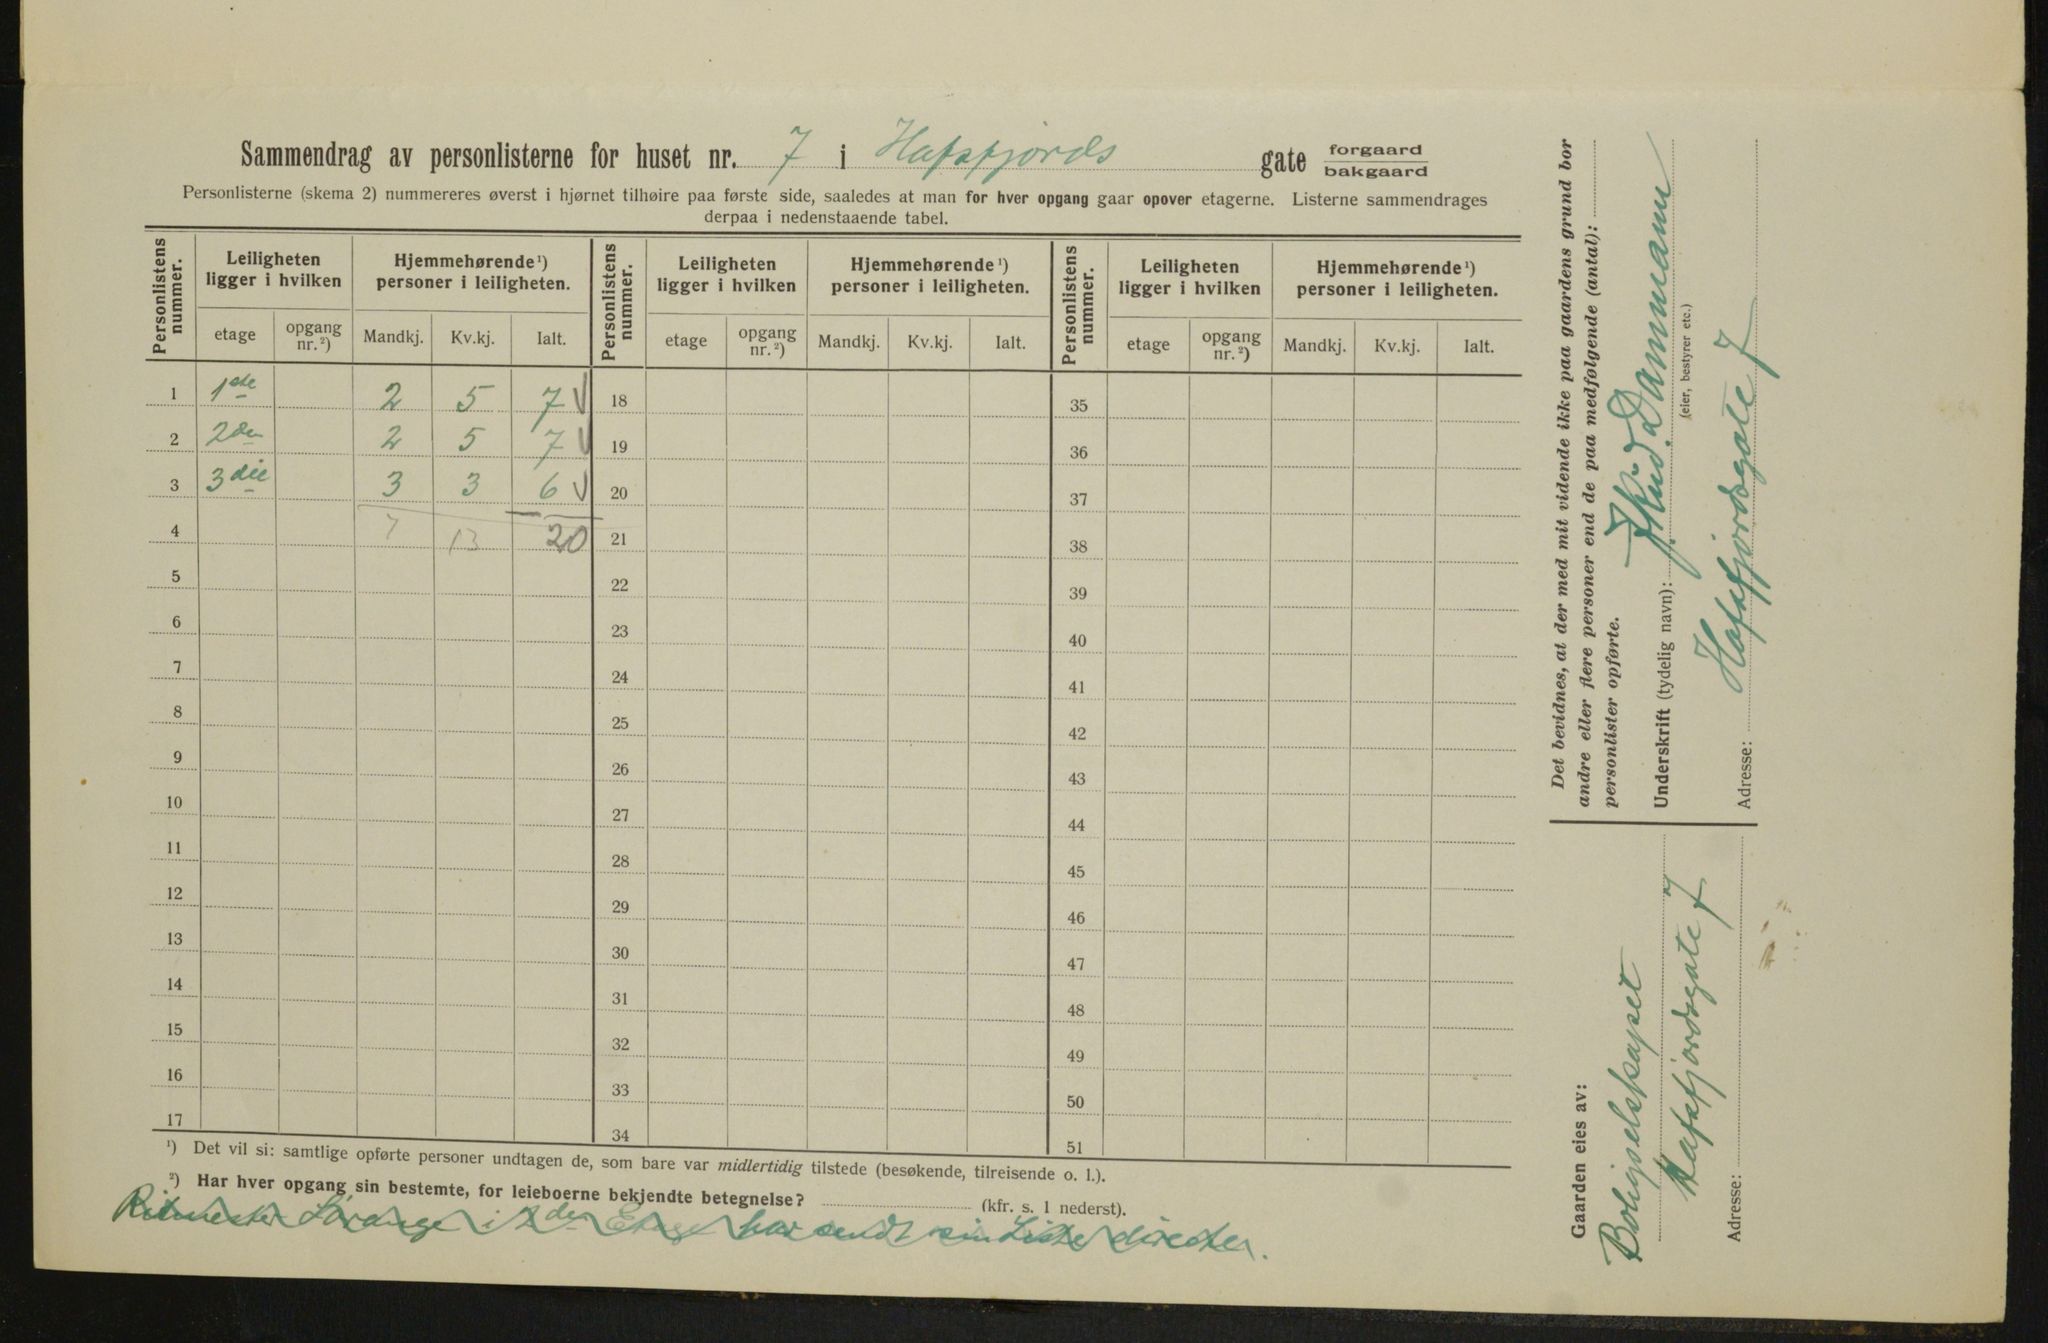 Sammendrag av personlisterne for huset nr. 7 i Hafsfjords gate forgaard bakgaard
Personlisterne (skema 2) nummereres øverst i hjørnet tilhøire paa første side, saaledes at man for hver opgang gaar opover etagerne. Listerne sammendrages
derpaa i nedenstaaende tabel.
Personlistens nummer. Leiligheten ligger i hvilken Hjemmehørende ¹) personer i leiligheten. Personlistens nummer. Leiligheten ligger i hvilken Hjemmehørende ¹) personer i leiligheten. Personlistens nummer. Leiligheten ligger i hvilken Hjemmehørende ¹) personer i leiligheten.
etage opgang nr. ²) Mandkj. Kv.kj. Ialt. etage opgang nr. ²) Mandkj. Kv.kj. Ialt. etage opgang nr. ²) Mandkj. Kv.kj. Ialt.
1 1ste 2 5 7 18 35
2 2den 2 5 7 19 36
3 3die 3 3 6 20 37
4 7 13 20 21 38
5 22 39
6 23 40
7 24 41
8 25 42
9 26 43
10 27 44
11 28 45
12 29 46
13 30 47
14 31 48
15 32 49
16 33 50
17 34 51
¹) Det vil si: samtlige opførte personer undtagen de, som bare var midlertidig tilstede (besøkende, tilreisende o. l.).
²) Har hver opgang sin bestemte, for leieboerne bekjendte betegnelse? (kfr. s. 1 nederst).
Ritmester Lorange i 2den Etage har sendt sin Liste direkte.
Det bevidnes, at der med mit vidende ikke paa gaardens grund bor
andre eller flere personer end de paa medfølgende (antal):
personlister opførte.
Underskrift (tydelig navn): Dammann
(eier, bestyrer etc.)
Adresse: Hafsfjordsgate 7
Gaarden eies av:
Boligselskapet
Hafsfjordsgate 7
Adresse: